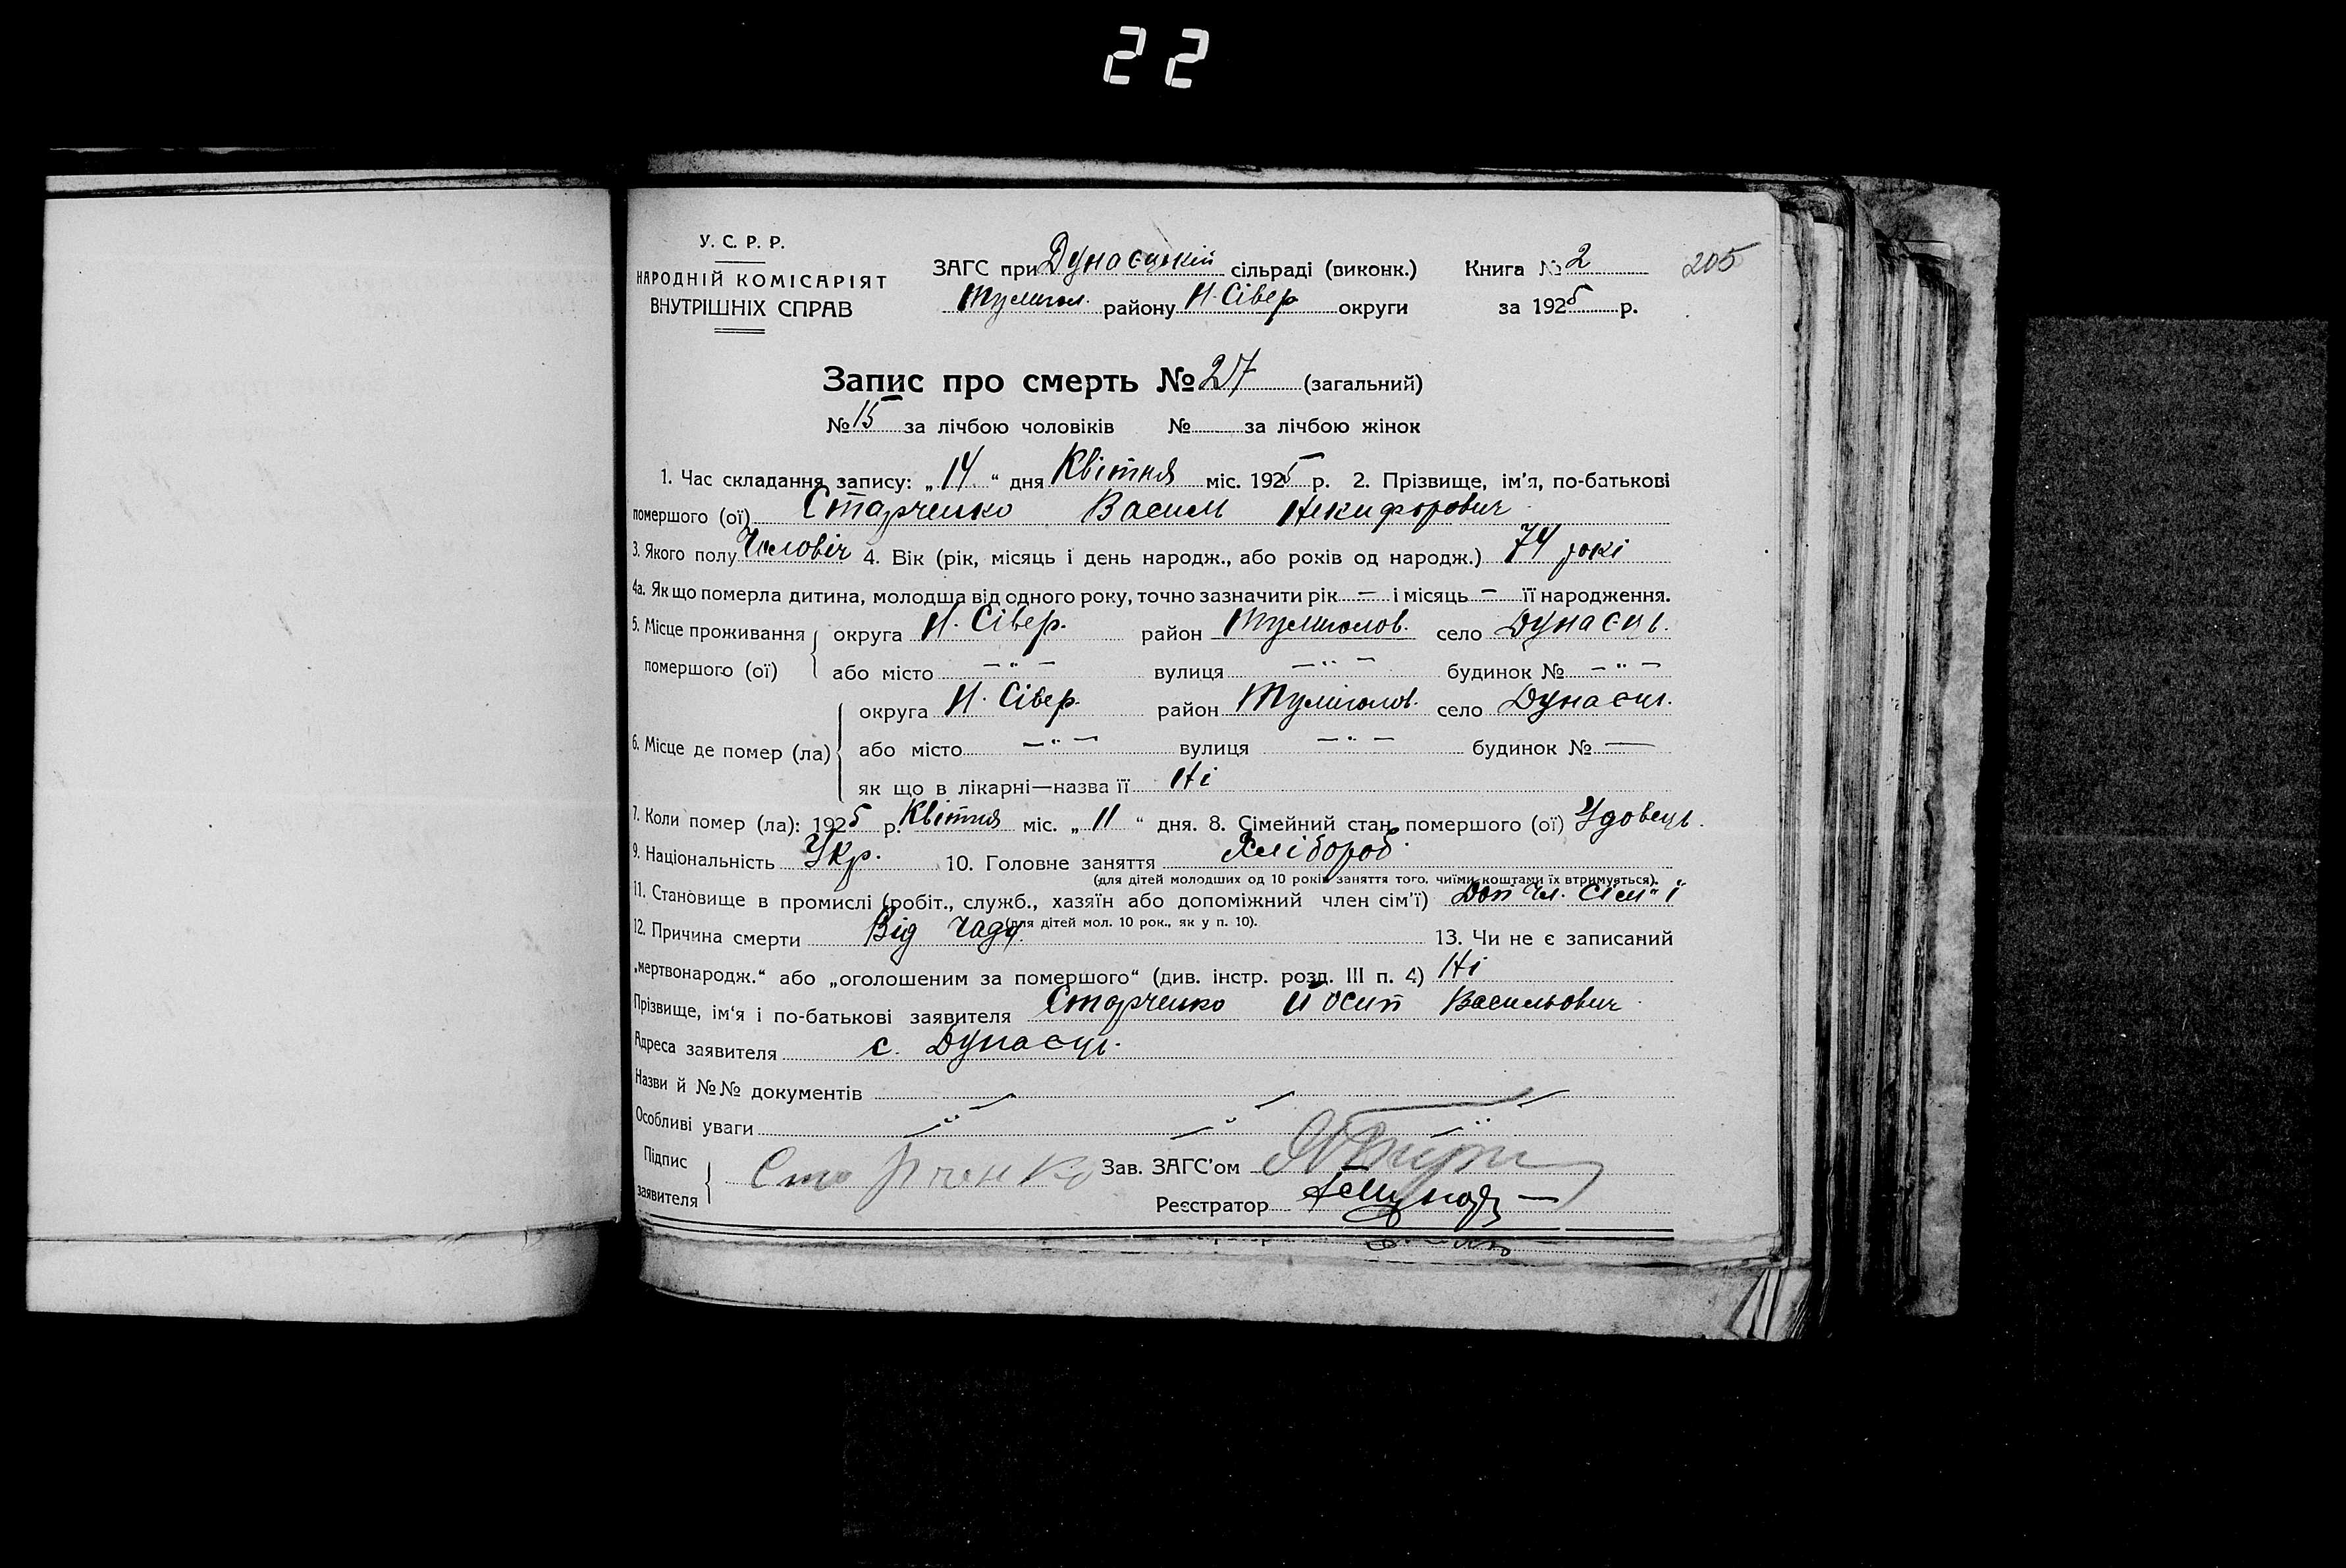 22
У. С. Р. Р.
НАРОДНІЙ КОМІСАРІЯТ
ВНУТРІШНІХ СПРАВ
ЗАГС при Дунаєцькій сільраді (виконк.) Книга № 2 205
Тулигол. району Н. Сівер округи за 1925 р.
Запис про смерть № 27 (загальний)
№ 15 за лічбою чоловіків № за лічбою жінок
1. Час складання запису: „14“ дня Квітня міс. 1925 р. 2. Прізвище, ім'я, по-батькові
помершого (ої) Старченко Василь Никифорович
3. Якого полу Чоловіч 4. Вік (рік, місяць і день народж., або років од народж.) 74 рокі
4а. Як що померла дитина, молодша від одного року, точно зазначити рік — і місяць — її народження.
5. Місце проживання помершого (ої) округа Н. Сівер. район Тулиголов. село Дунаєць.
або місто — " — вулиця — " — будинок № — " —
6. Місце де помер (ла) округа Н. Сівер. район Тулиголов. село Дунаєць.
або місто — " — вулиця — " — будинок № —
як що в лікарні—назва її Ні
7. Коли помер (ла): 1925 р. Квітня міс. „11“ дня. 8. Сімейний стан помершого (ої) Удовець.
9. Національність Укр. 10. Головне заняття Хлібороб.
(для дітей молодших од 10 років заняття того, чиїми коштами їх втримується).
11. Становище в промислі (робіт., служб., хазяїн або допоміжний член сім'ї) Доп чл. сім"ї
(для дітей мол. 10 рок., як у п. 10).
12. Причина смерти Від чаду. 13. Чи не є записаний
„мертвонародж.“ або „оголошеним за помершого“ (див. інстр. розд. III п. 4) Ні
Прізвище, ім'я і по-батькові заявителя Старченко Йосип Васильович
Адреса заявителя с. Дунаєць.
Назви й №№ документів
Особливі уваги
Підпис заявителя Старченко Зав. ЗАГС'ом
Реєстратор